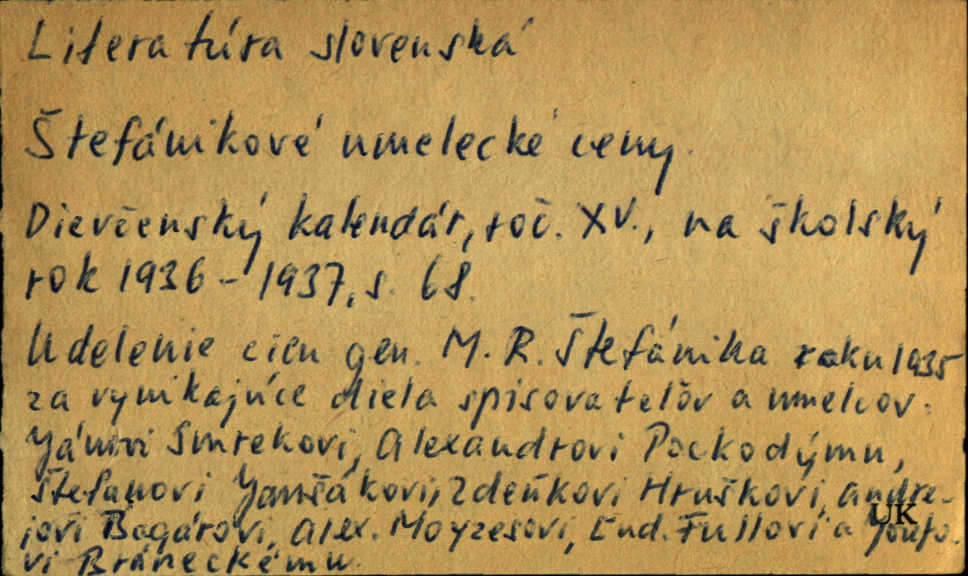 Literatúra slovenská
Štefánikové umelecké ceny.
Dievčenský kalendár, roč. XV., na školský
rok 1936-1937, s. 68.
Udelenie cien gen. M. R. Štefánika roku 1935
za vynikajúce diela spisovateľov a umelcov.
Jánovi Smrekovi, Alexandrovi Pockodýmu,
Štefanovi Jamšákovi, Zdeňkovi Hruškovi, Andre-
jovi Bagárovi, Alex. Moyzesovi, Ľud. Fullovi a Jozefo-
vi Bráneckému.
UK